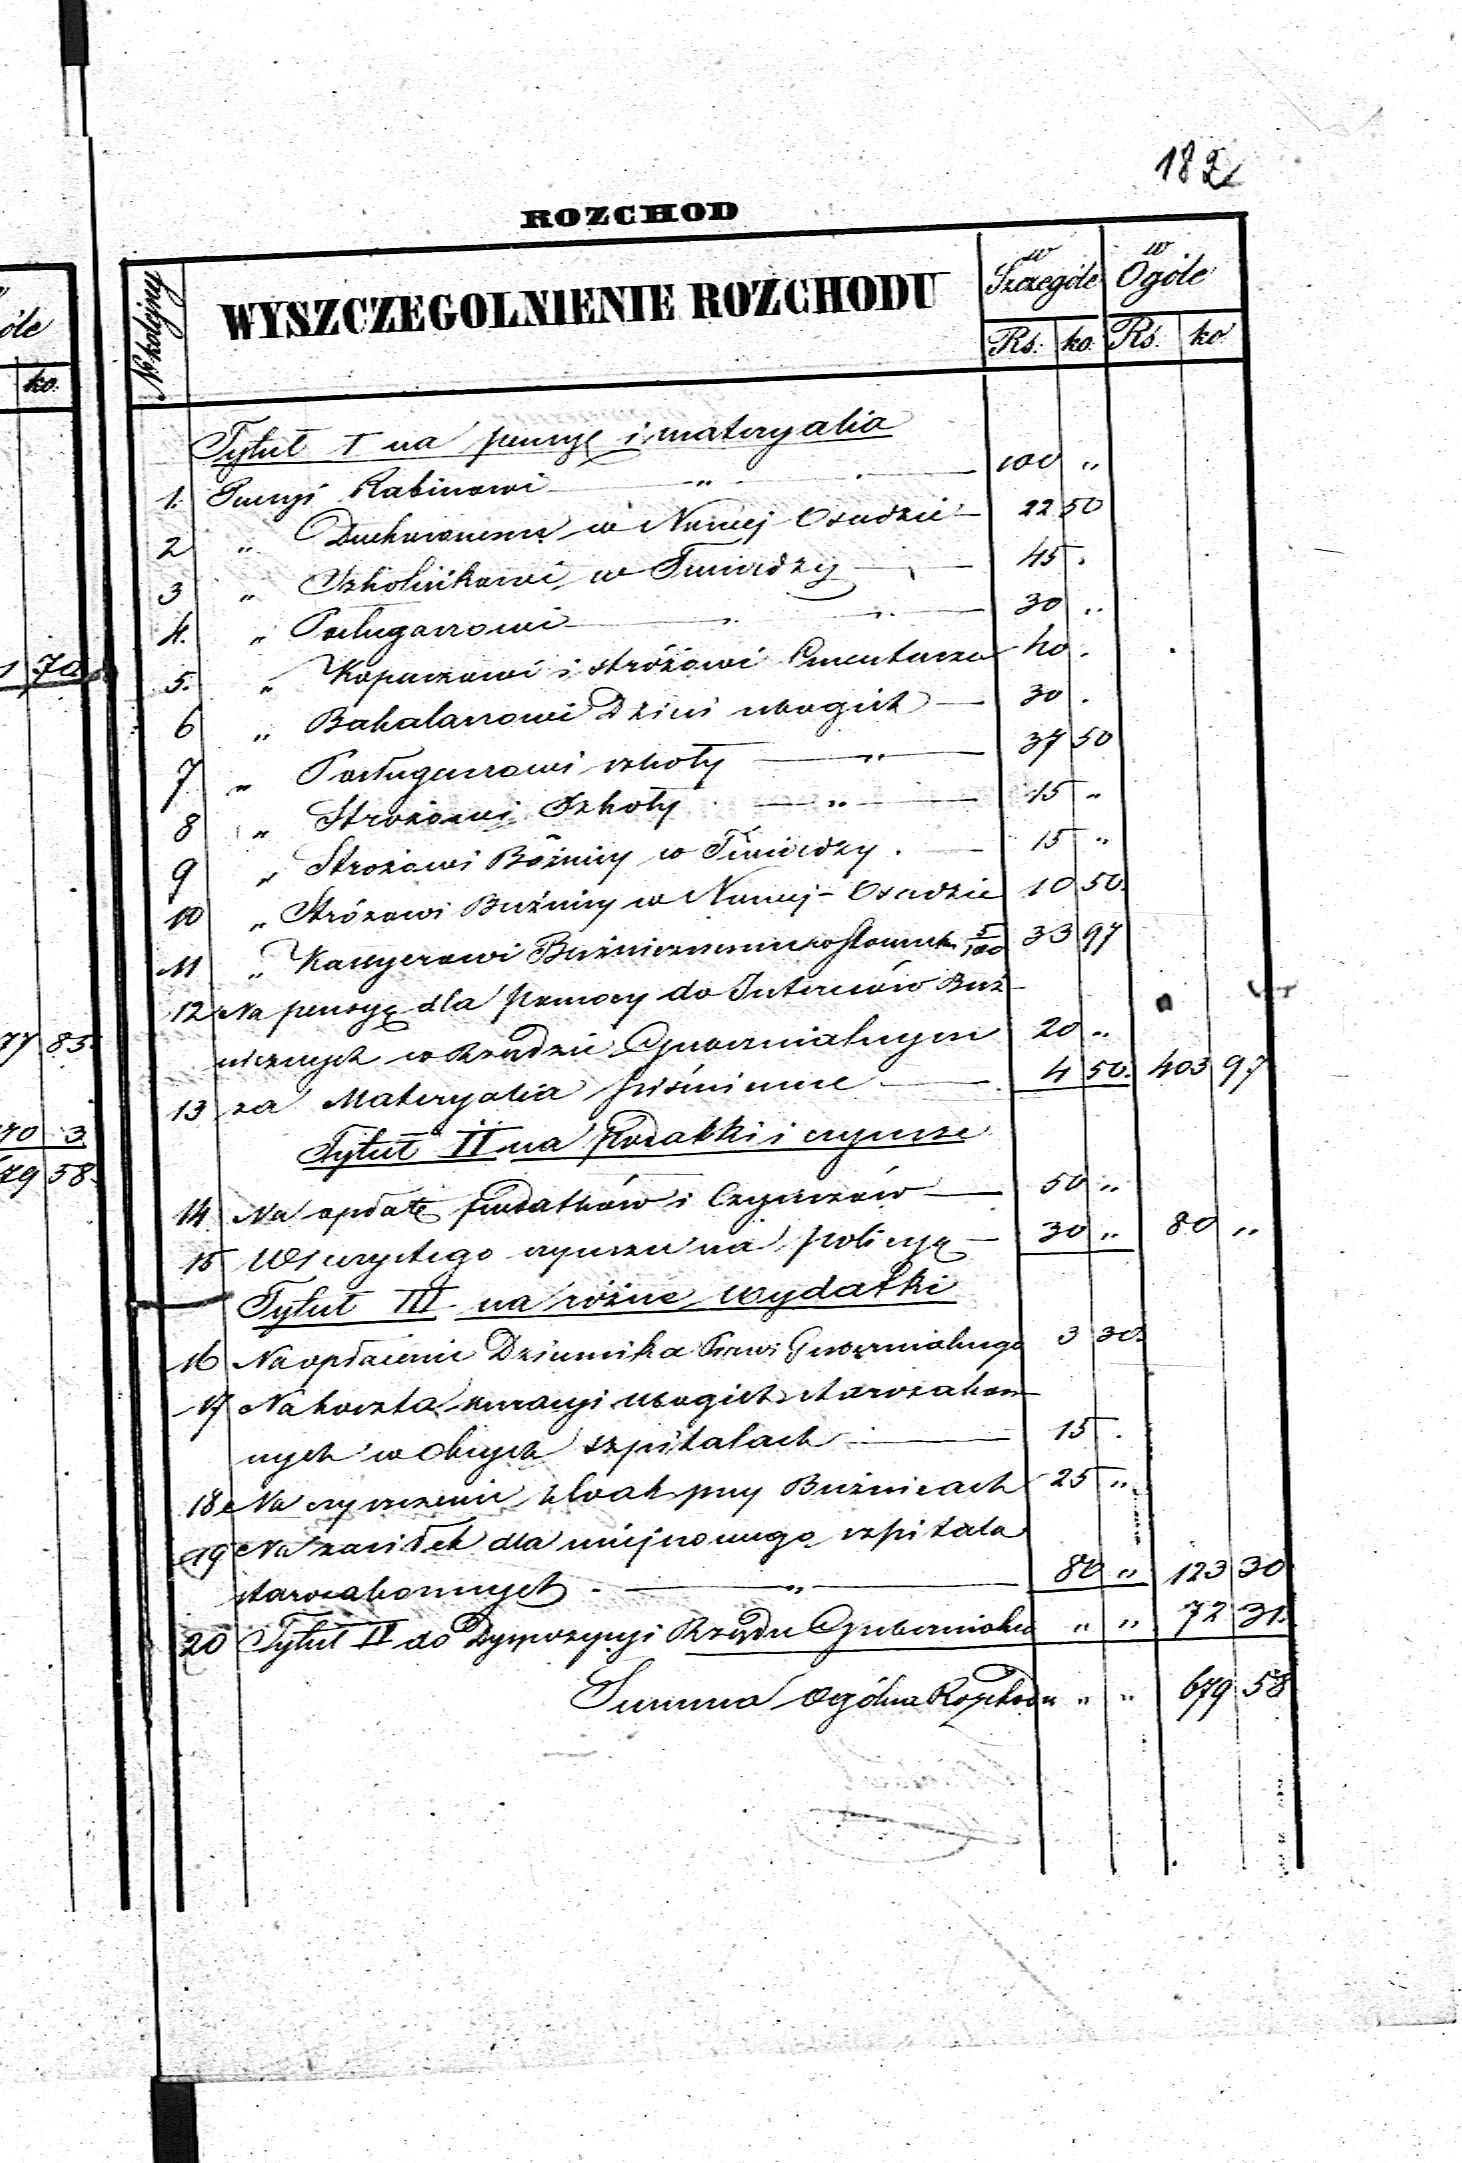 182
ROZCHOD
No kolejny
WYSZCZEGOLNIENIE ROZCHODU
w Szczególe
w Ogóle
Rs. ko. Rs. ko
óle
ko.
Tytuł I na pensye i materyalia
1. Pensyi Rabinowi — „ — 100 „
2 „ Duchownemu w Nowej Osadzie — 22 50
3 „ Szkolnikowi w Twierdzy — 45 .
4. „ Posługarzowi — „ — 30 „
5. „ Kopaczowi i stróżowi Cmentarza 40 .
6 „ Bakałarzowi Dzieci ubogich — 30 .
7 „ Posługarzowi szkoły — „ — 37 50
8 „ Stróżowi Szkoły — „ — 15 „
9 „ Stróżowi Bóżnicy w Twierdzy . — 15 „
10 „ Stróżowi Buźnicy w Nowej-Osadzie 10 50.
11 „ Kassyerowi Buźnicznemu 5/100 33 97
12 Na pensyę dla pomocy do Interesów Buź-
nicznych w Rządzie Gubernialnym 20 „
13 za Materyalia piśmienne — 4 50. 403 97
Tytuł II na Podatki i czynsze
14 Na opłatę podatków i Czynszów — 50 „
15 Wieczystego czynszu na policyę — 30 „ 80 „
Tytuł III na różne wydatki
16 Na opłacenie Dziennika Gubernialnego 3 30.
17 Na koszta kuracyi ubogich starozakon-
nych w obcych szpitalach — 15 .
18 Na czyszczenie kloak przy Buźnicach 25 „
19 Na zasiłek dla miejscowego szpitala
starozakonnych — „ — 80 „ 123 30
20 Tytuł IV do Dyspozycyi Rządu Gubernialn „ „ 72 31.
Summa Ogólna Rozchodu „ „ 679 58
1 70
77 85.
70 3
79 58.